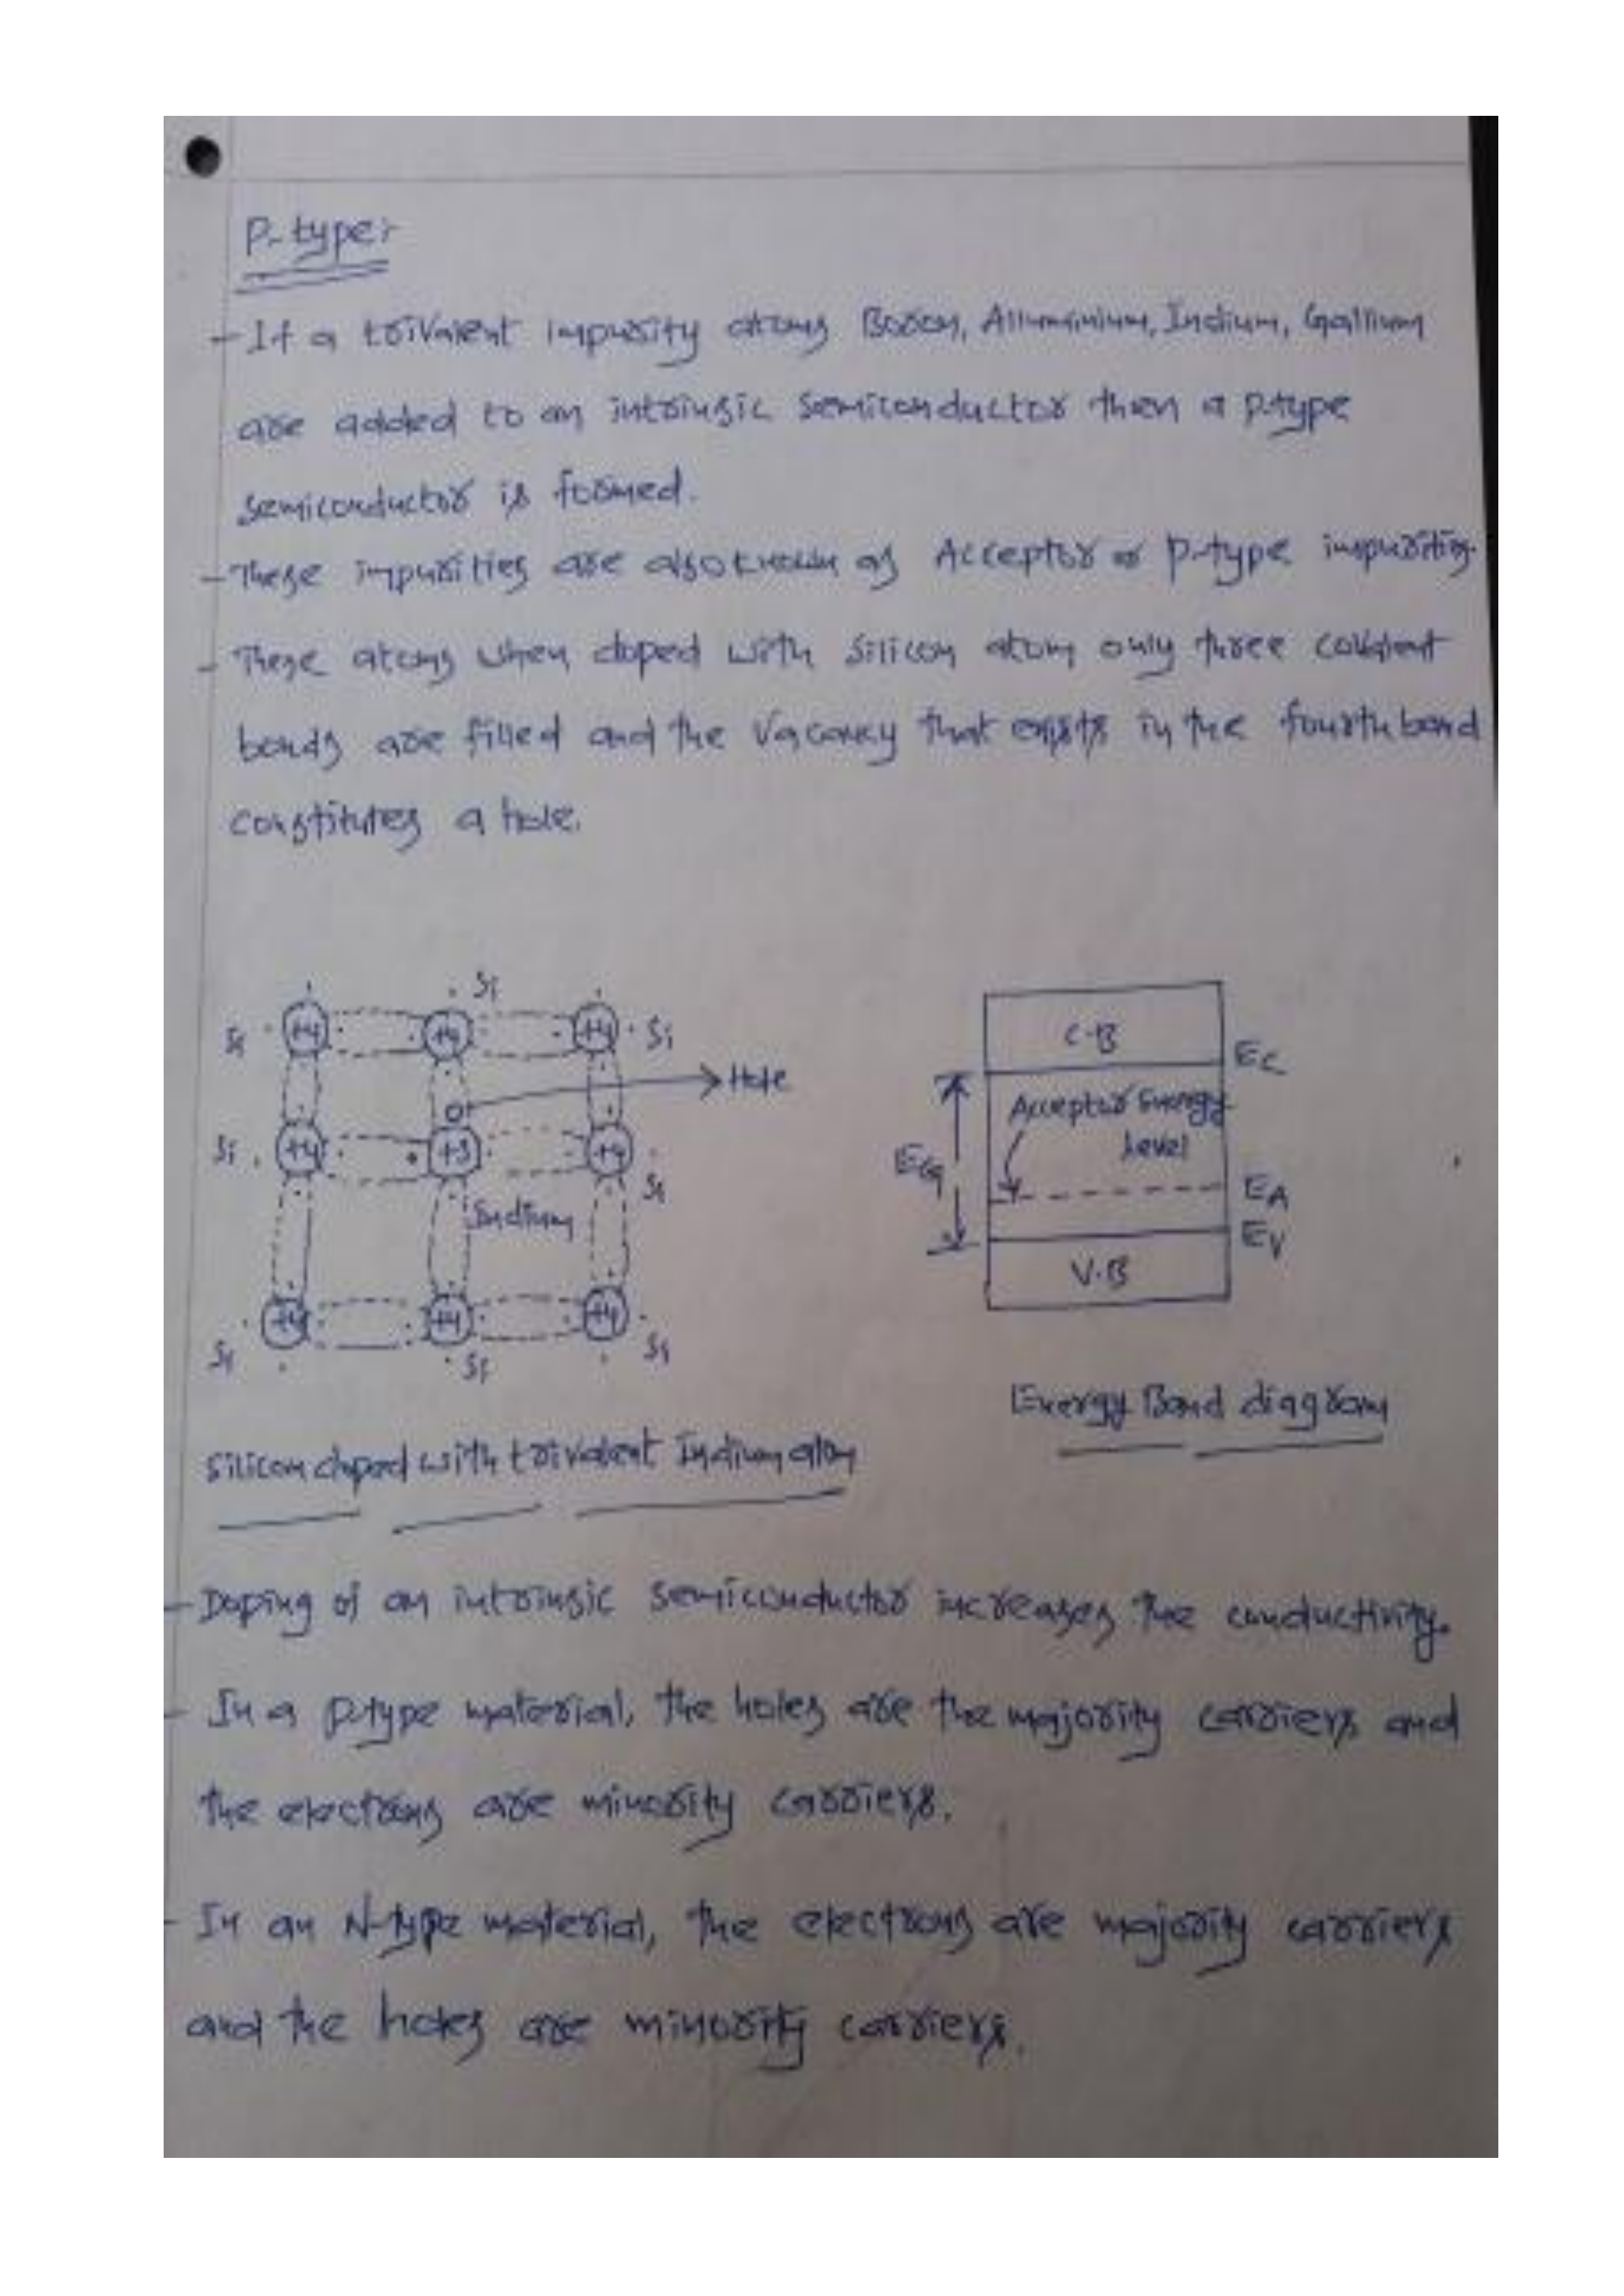 P-type:-
- If a trivalent impurity atoms Boron, Alluminium, Indium, Gallium
are added to an intrinsic semiconductor then a p-type
semiconductor is formed.
- These impurities are also known as Acceptor or p-type impurities.
- These atoms when doped with silicon atom only three covalent
bonds are filled and the vacancy that exists in the fourth bond
constitutes a hole.
Si
Si +4 +4 +4 Si
Hole
Si +4 +3 +4
Si
Indium
+4 +4 +4
Si Si Si
Silicon doped with trivalent Indium atom
C.B
EC
Acceptor Energy
Level
EG
EA
EV
V.B
Energy Band diagram
- Doping of an intrinsic semiconductor increases the conductivity.
- In a p-type material, the holes are the majority carriers and
the electrons are minority carriers.
- In an N-type material, the electrons are majority carriers
and the holes are minority carriers.